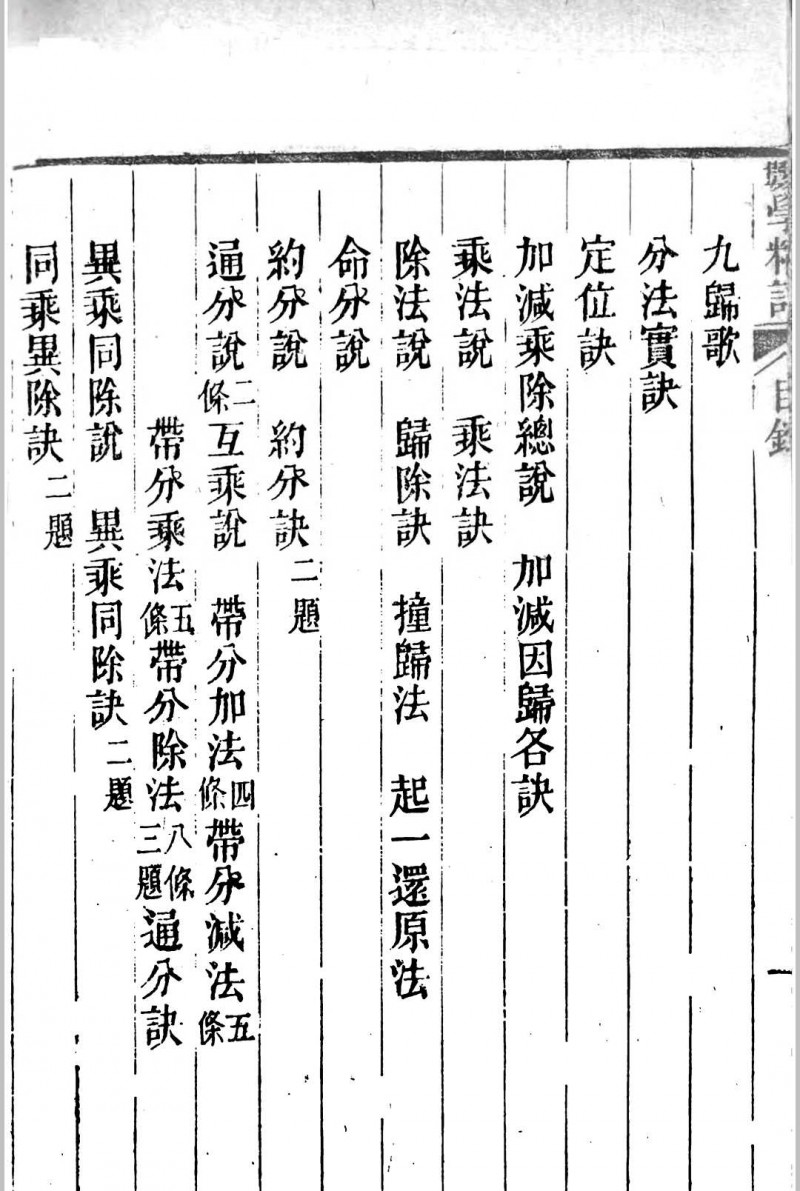 學精訣 目錄 一
九歸歌
分法實訣
定位訣
加減乘除總說 加減因歸各訣
乘法說 乘法訣
除法說 歸除訣 撞歸法 起一還原法
命分說
約分說 約分訣二題
通分說二條互乘說 帶分加法四條帶分減法五條
帶分乘法五條帶分除法八條三題通分訣
異乘同除說 異乘同除訣二題
同乘異除訣二題